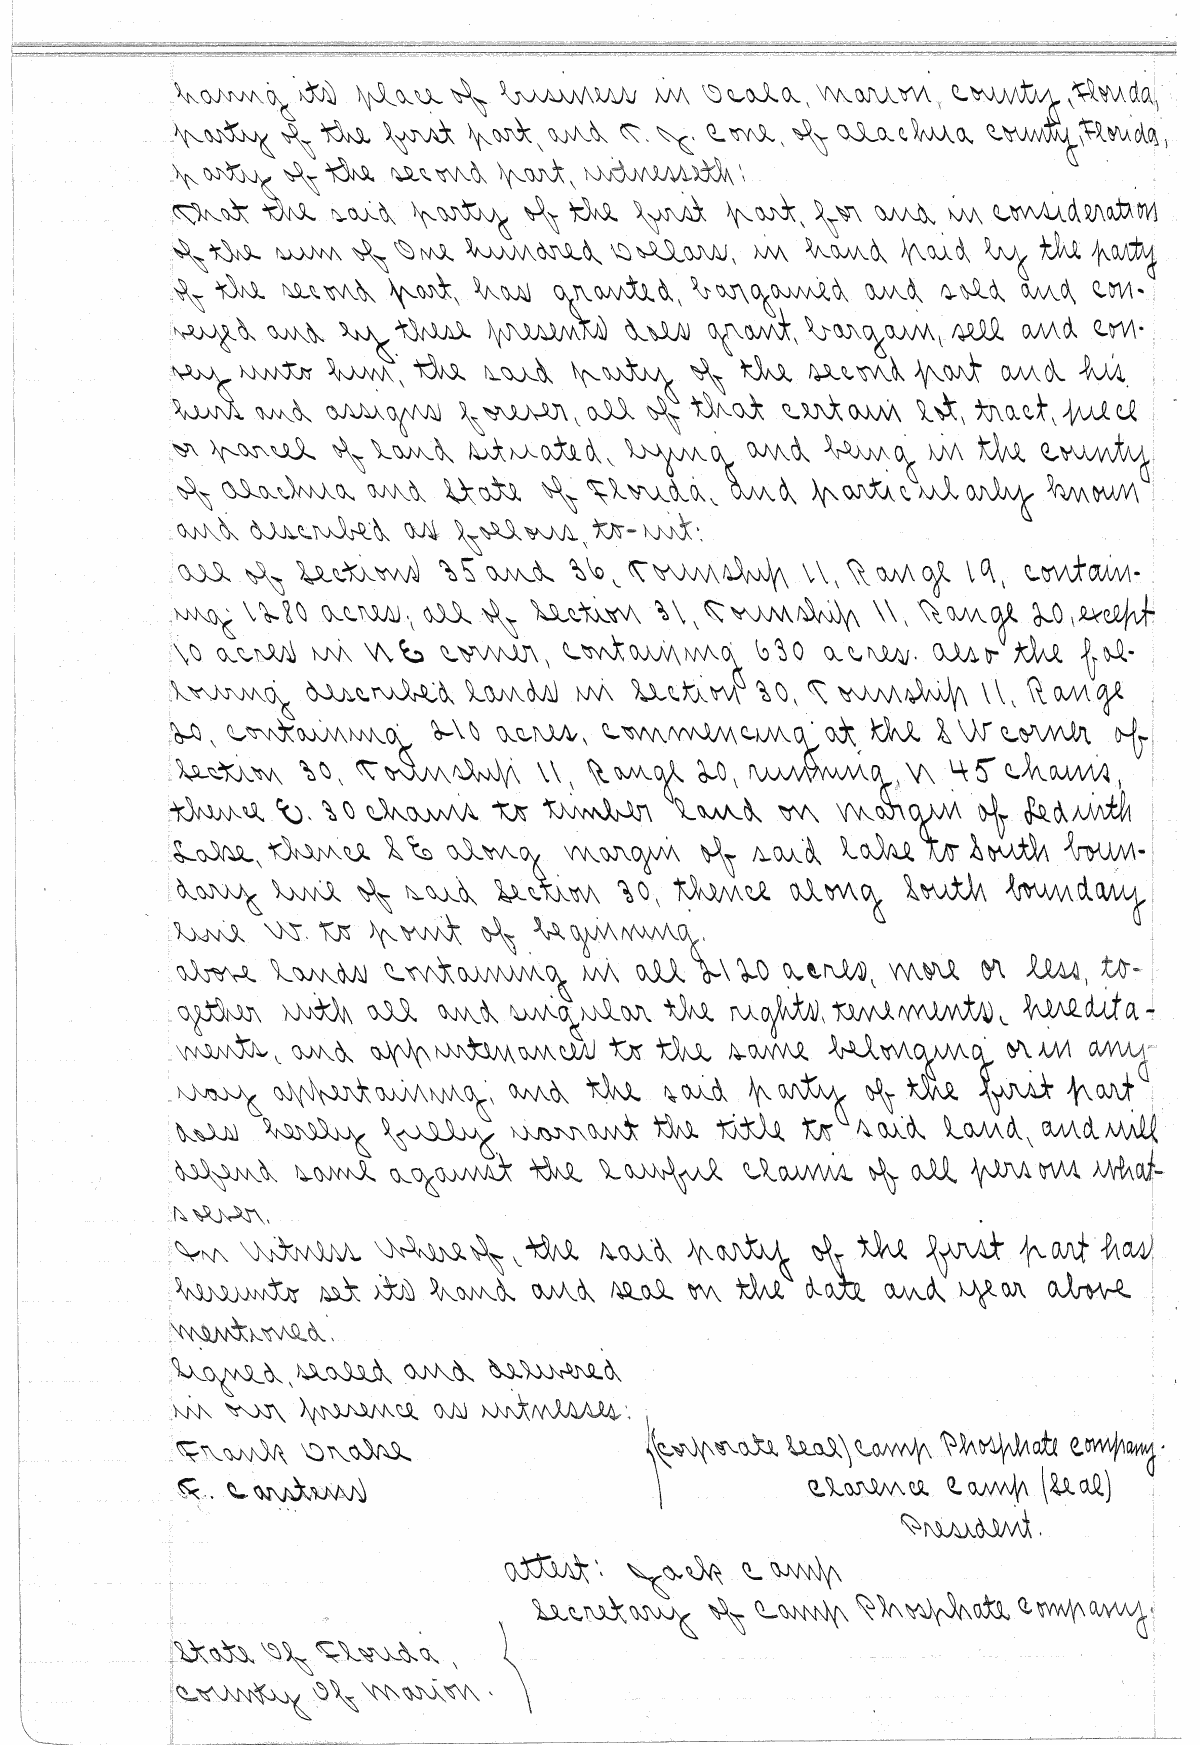 having its place of business in Ocala, Marion, County, Florida,
party of the first part, and T. J. Cone, of Alachua County, Florida,
party of the second part, witnesseth:
That the said party of the first part, for and in consideration
of the sum of One hundred Dollars, in hand paid by the party
of the second part, has granted, bargained and sold and con-
veyed and by these presents does grant, bargain, sell and con-
vey unto him, the said party of the second part and his
heirs and assigns forever, all of that certain lot, tract, piece
or parcel of land situated, lying and being in the County
of Alachua and State of Florida, and particularly known
and described as follows, to-wit:
All of Sections 35 and 36, Township 11, Range 19, contain-
ing 1280 acres; all of Section 31, Township 11, Range 20, except
10 acres in NE corner, containing 630 acres. Also the fol-
lowing described lands in Section 30, Township 11, Range
20, containing 210 acres, commencing at the SW corner of
Section 30, Township 11, Range 20, running N 45 chains,
thence E. 30 chains to timber land on margin of Ledwith
Lake, thence SE along margin of said lake to South boun-
dary line of said Section 30, thence along South boundary
line W. to point of beginning.
Above lands containing in all 2120 acres, more or less, to-
gether with all and singular the rights, tenements, heredita-
ments, and appurtenances to the same belonging or in any-
way appertaining; and the said party of the first part
does hereby fully warrant the title to said land, and will
defend same against the lawful claims of all persons what-
soever.
In Witness Whereof, the said party of the first part has
hereunto set its hand and seal on the date and year above
mentioned.
Signed, sealed and delivered
in our presence as witnesses:
Frank Drake (Corporate Seal) Camp Phosphate Company.
F. Carstens Clarence Camp (Seal)
President.
Attest: Jack Camp
Secretary of Camp Phosphate Company.
State Of Florida,
County Of Marion.